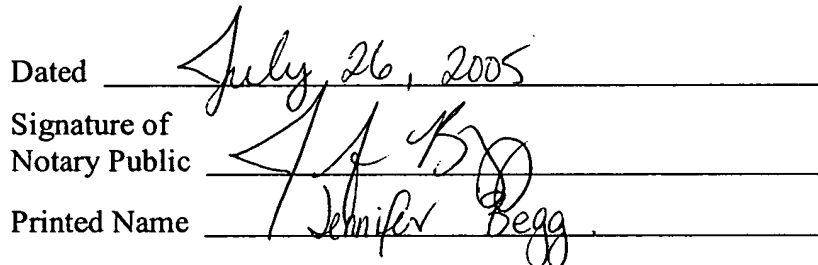 Dated July 26, 2005
Signature of
Notary Public
Printed Name Jennifer Begg